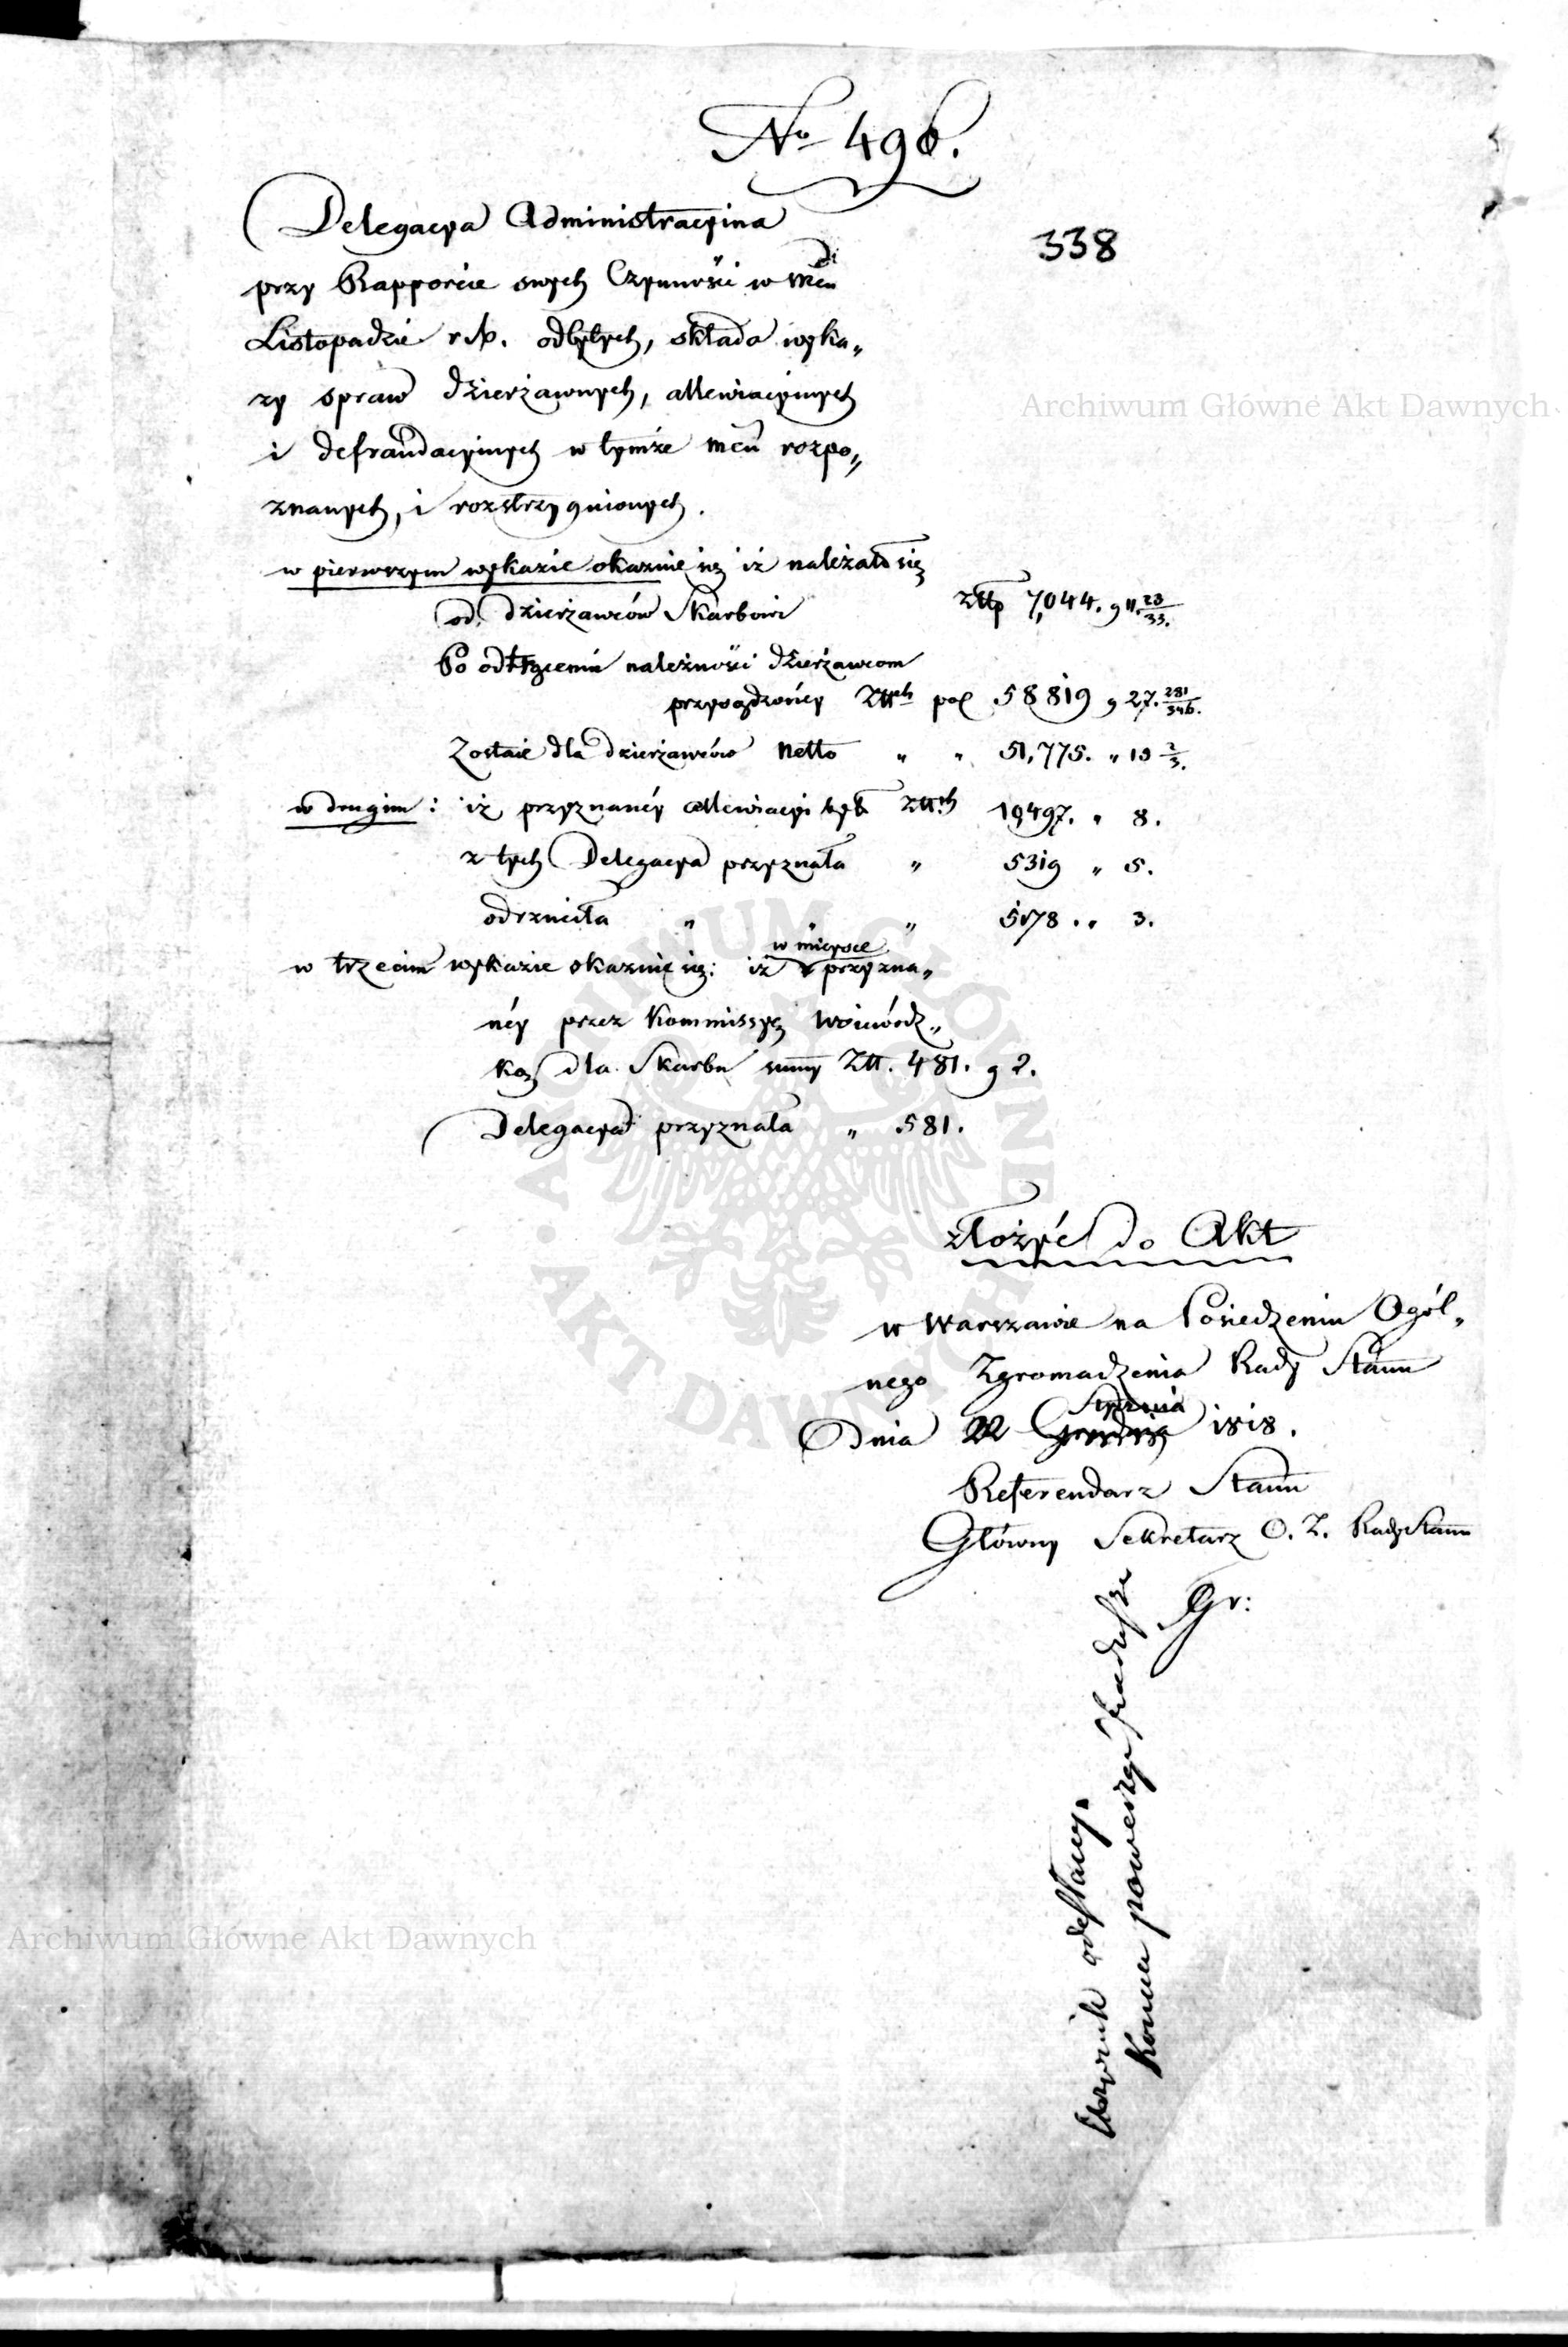 No 496.
338
Delegacya Administracyina
przy Rapporcie swych Czynności w Mcu
Listopadzie r. b. odbytych, składa wyka„
zy spraw dzierżawnych, allewiacyinych
i defraudacyinych w tymże mcu rozpo„
znanych, i rozstrzygnionych.
w pierwszym wykazie okazuie się iż należało się
od dzierżawców Skarbowi złtp 7,044. g 11. 23/33.
Po odtrąceniu należności dzierżawcom
przysądzonéy Złtch pol 58819 g 27. 281/346.
Zostaie dla dzierżawców netto „ „ 51,775. „ 15 2/3.
w drugim: iż przyznanéy allewiacyi było złtch 10,497. „ 8.
z tych Delegacya przyznała „ 5319 „ 5.
odrzuciła „ „ „ 5178. „ 3.
w trzecim wykazie okazuie się: iż w mieysce przyzna„
néy przez Kommissyą Woiewódz„
ką dla Skarbu summy Złt. 481. g 2.
Delegacya przyznała „ 581.
złożyć do Akt
w Warszawie na Posiedzeniu Ogól„
nego Zgromadzenia Rady Stanu
Dnia 22 Stycznia 1818.
Referendarz Stanu
Główny Sekretarz O. Z. Rady Stanu
Gr:
odesłany.
Archiwum Główne Akt Dawnych
Archiwum Główne Akt Dawnych
ARCHIWUM GŁÓWNE AKT DAWNYCH